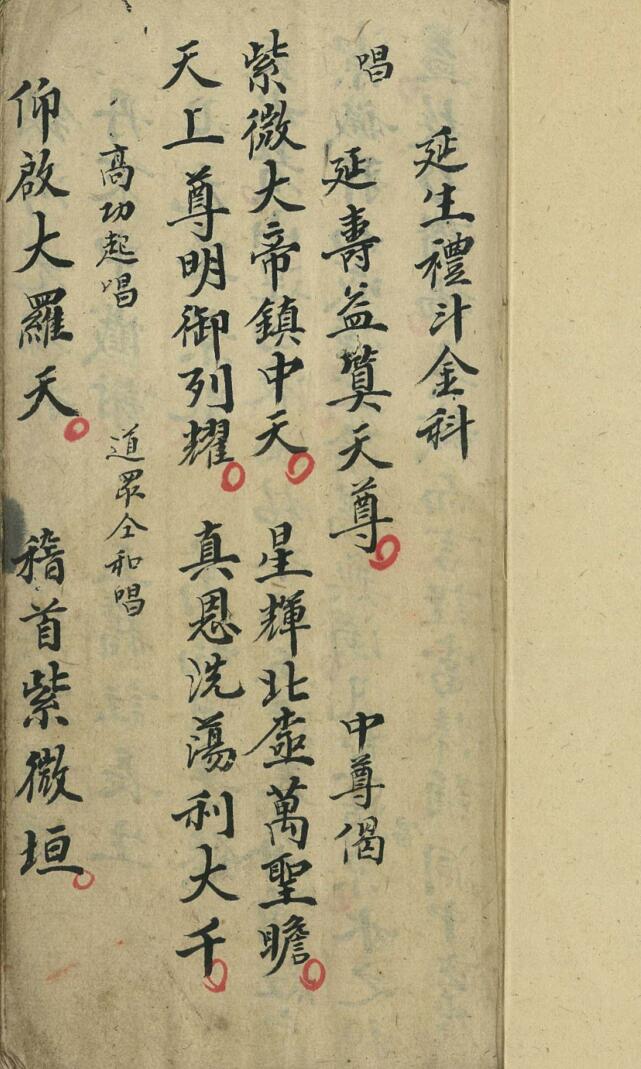 延生禮斗金科
唱 延壽益算天尊 中尊偈
紫微大帝鎮中天 星輝北壺萬聖瞻
天上尊明御列耀 真恩洗蕩利大千
高功起唱 道眾仝和唱
仰啟大羅天 稽首紫微垣